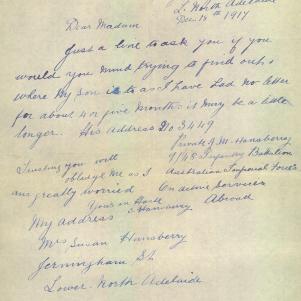 L. North Adelaide
Dec 14th 1917
Dear Madam
Just a line to ask you if you
would you mind trying to find out
where my son is to as I have had no letter
for about 4 or five months is may be a little
longer. His Address No 3449
Private J. M. Hansberry
9/48 Infantry Battalion
Trusting you will
obledge me as I
am greatly worried
Australian Imperial Forces
On active Services
Abroad
Yours in Haste
S Hansberry
My address
Mrs Susan Hansberry
Jerningham St
Lower North Adelaide